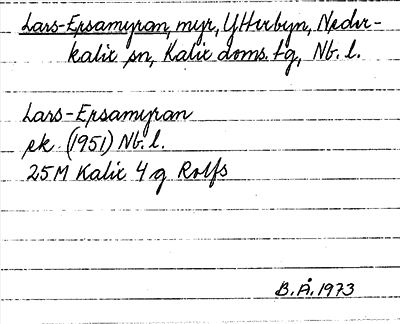 Lars-Ersamyran, myr, Ytterbyn, Neder-
kalix sn, Kalix doms. tg, Nb. l.
Lars-Ersamyran
ek (1951) Nb. l.
25M Kalix 4 g Rolfs
B.Å. 1973